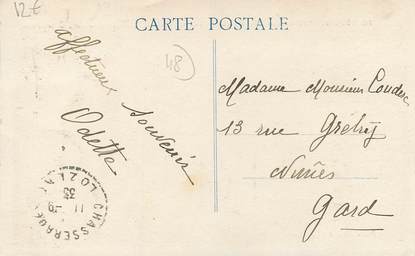 12€
CARTE POSTALE
48
affectueux
souvenir
Odette
Madame Monsieur
13 rue Gretry
Nimes
Gard
CHASSERADES
11 -9
33
LOZERE